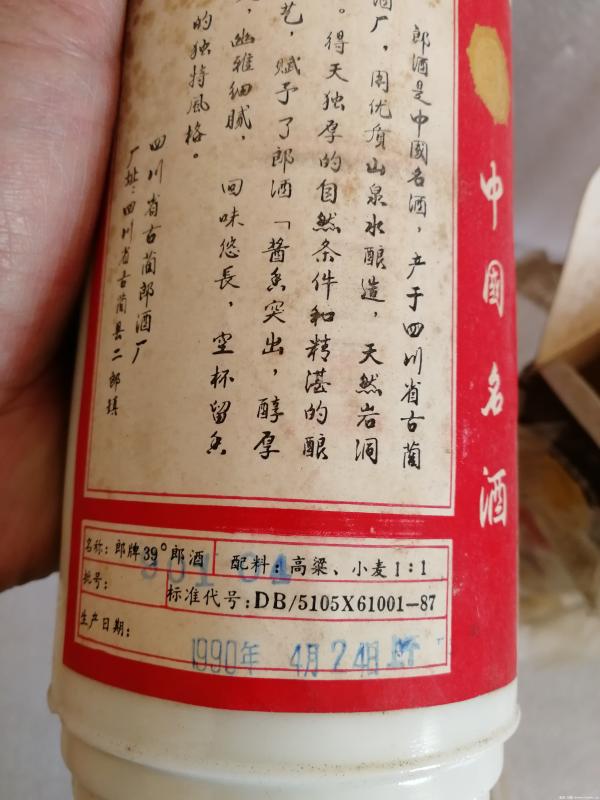 中國名酒
郎酒是中國名酒，产于四川省古蔺
酒厂，用优质山泉水酿造，天然岩洞
。得天独厚的自然条件和精湛的酿
艺，赋予了郎酒「酱香突出，醇厚
，幽雅细腻，回味悠長，空杯留香
的独特风格。
四川省古蔺郎酒厂
厂址：四川省古蔺县二郎镇
名称：郎牌39°郎酒
配料：高粱、小麦1:1
批号：
标准代号：DB/5105X61001-87
生产日期：
1990年 4月24日